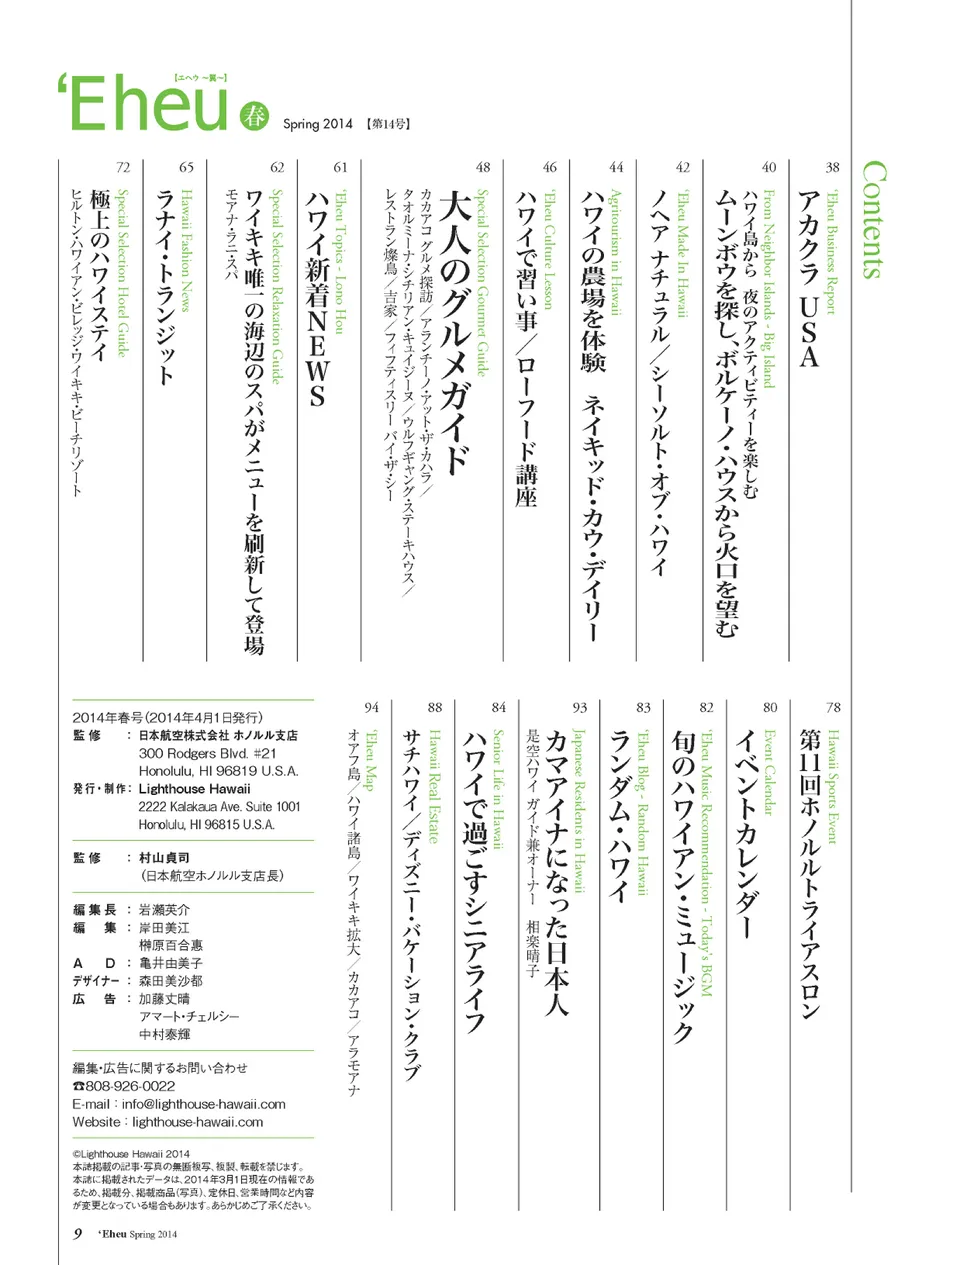 【エヘウ ~翼~】
‘Eheu 春 Spring 2014 【第14号】
Contents
38
‘Eheu Business Report
アカクラ USA
40
From Neighbor Islands - Big Island
ハワイ島から 夜のアクティビティーを楽しむ
ムーンボウを探し、ボルケーノ・ハウスから火口を望む
42
‘Eheu Made In Hawaii
ノヘア ナチュラル／シーソルト・オブ・ハワイ
44
Agritourism in Hawaii
ハワイの農場を体験 ネイキッド・カウ・デイリー
46
‘Eheu Culture Lesson
ハワイで習い事／ローフード講座
48
Special Selection Gourmet Guide
大人のグルメガイド
カカアコ グルメ探訪／アランチーノ・アット・ザ・カハラ／
タオルミーナ・シチリアン・キュイジーヌ／ウルフギャング・ステーキハウス／
レストラン燦鳥／吉家／フィフティスリー バイ・ザ・シー
61
‘Eheu Topics - Lono Hou
ハワイ・新着NEWS
62
Special Selection Relaxation Guide
ワイキキ唯一の海辺のスパがメニューを刷新して登場
モアナ・ラニ・スパ
65
Hawaii Fashion News
ラナイ・トランジット
72
Special Selection Hotel Guide
極上のハワイステイ
ヒルトン・ハワイアン・ビレッジ・ワイキキ・ビーチリゾート
78
Hawaii Sports Event
第11回ホノルルトライアスロン
80
Event Calendar
イベントカレンダー
82
‘Eheu Music Recommendation - Today's BGM
旬のハワイアン・ミュージック
83
‘Eheu Blog - Random Hawaii
ランダム・ハワイ
93
Japanese Residents in Hawaii
カマアイナになった日本人
是空ハワイ ガイド兼オーナー 相楽晴子
84
Senior Life in Hawaii
ハワイで過ごすシニアライフ
88
Hawaii Real Estate
サチハワイ／ディズニー・バケーション・クラブ
94
‘Eheu Map
オアフ島／ハワイ諸島／ワイキキ拡大／カカアコ／アラモアナ
2014年春号（2014年4月1日発行）
監修 : 日本航空株式会社 ホノルル支店
300 Rodgers Blvd. #21
Honolulu, HI 96819 U.S.A.
発行・制作: Lighthouse Hawaii
2222 Kalakaua Ave. Suite 1001
Honolulu, HI 96815 U.S.A.
監修 : 村山貞司
（日本航空ホノルル支店長）
編集長 : 岩瀬英介
編集 : 岸田美江
榊原百合惠
AD : 亀井由美子
デザイナー : 森田美沙都
広告 : 加藤丈晴
アマート・チェルシー
中村泰輝
編集・広告に関するお問い合わせ
☎808-926-0022
E-mail : info@lighthouse-hawaii.com
Website : lighthouse-hawaii.com
©Lighthouse Hawaii 2014
本誌掲載の記事・写真の無断複写、複製、転載を禁じます。
本誌に掲載されたデータは、2014年3月1日現在の情報であ
るため、掲載分、掲載商品（写真）、定休日、営業時間など内容
が変更となっている場合もあります。あらかじめご了承ください。
9 ‘Eheu Spring 2014